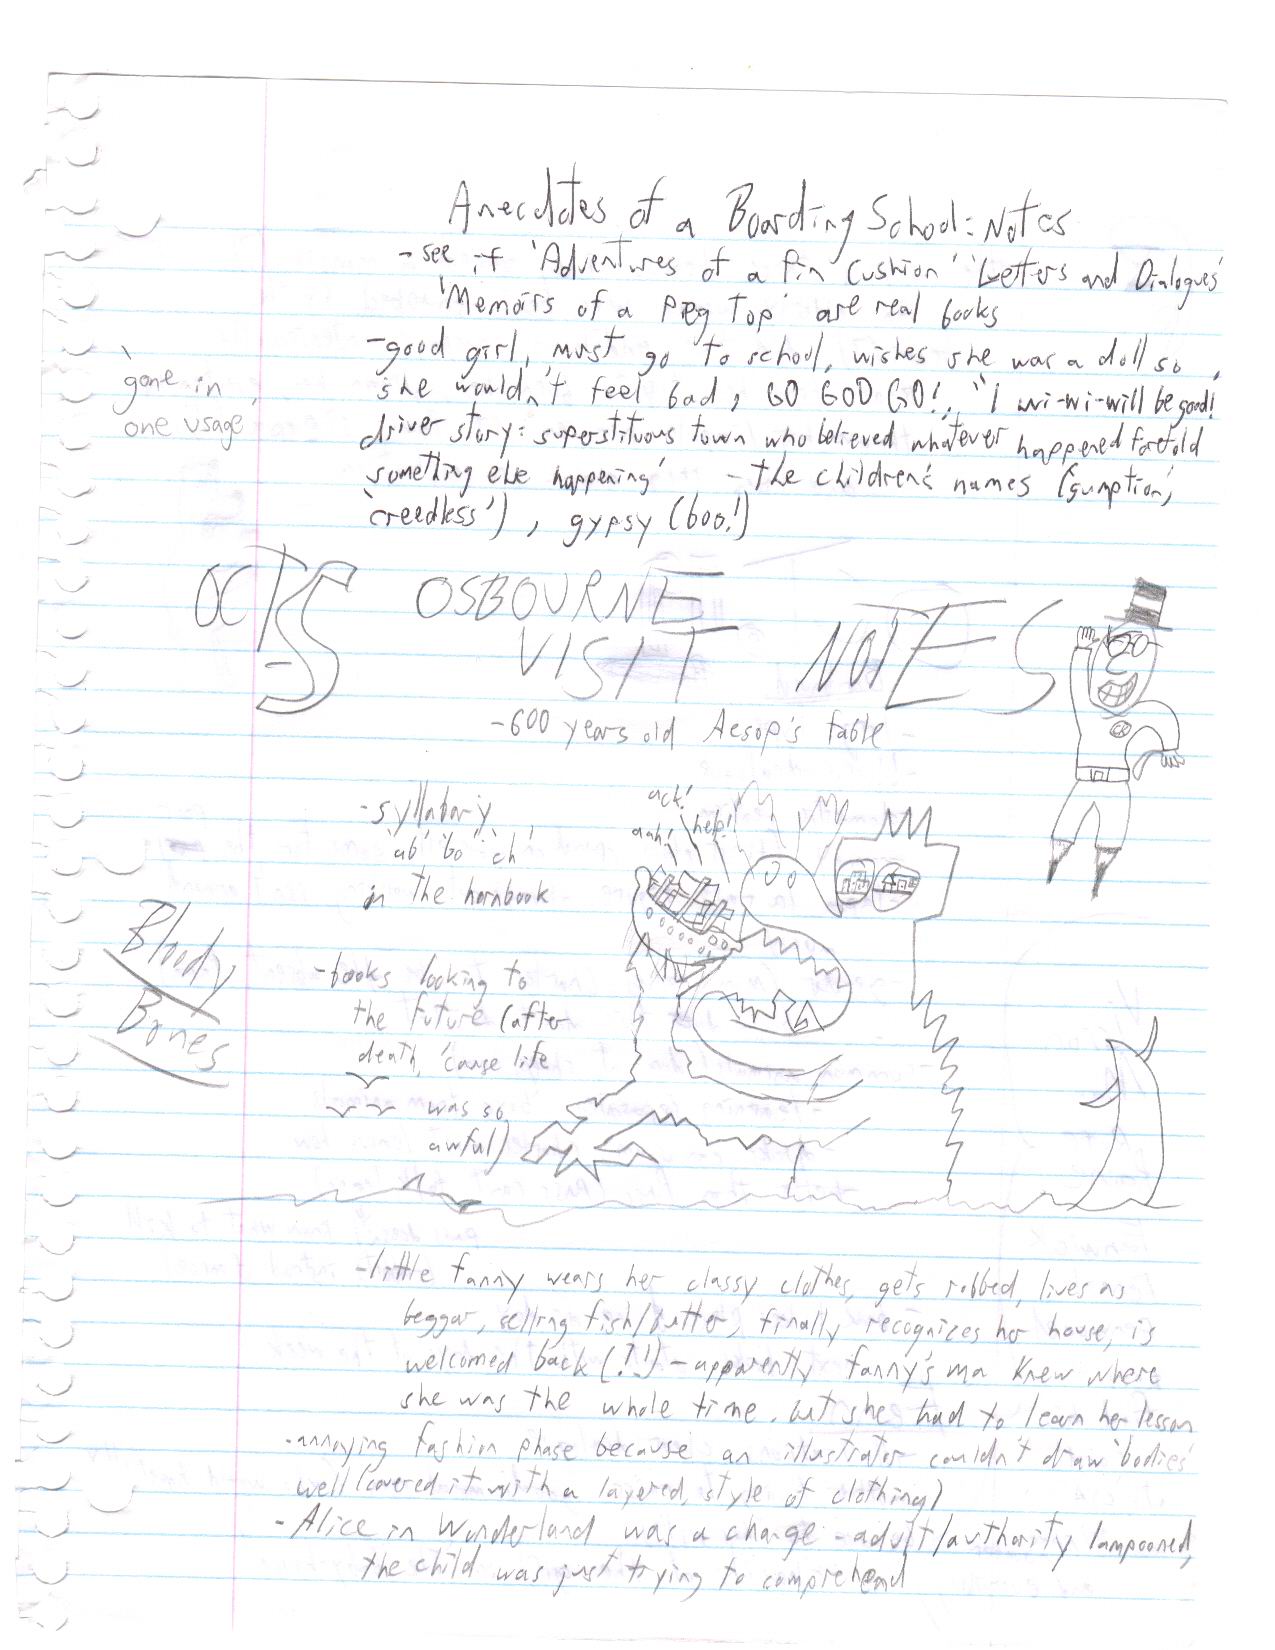 Anecdotes of a Boarding School: Notes
- see if 'Adventures of a Pin Cushion' 'Letters and Dialogues'
'Memoirs of a Peg Top' are real books
- good girl, must go to school, wishes she was a doll so
she wouldn't feel bad, GO GOD GO!, "I wi-wi-will be good!
driver story: superstituous town who believed whatever happened foretold
something else happening' - the children's names ('gumption',
'creedless'), gypsy (boo!)
gone in
one usage
OCT 5 OSBOURNE
VISIT NOTES
- 600 years old Aesop's fable
- syllabariy
'ab' 'bo' 'ch'
in the hornbook
ack!
aah! help!
Bloody
Bones
- books looking to
the future (after
death, 'cause life
was so
awful)
- little fanny wears her classy clothes, gets robbed, lives as
beggar, selling fish/butter, finally recognizes her house, is
welcomed back (?!) - apparently fanny's ma knew where
she was the whole time. but she had to learn her lesson
- annoying fashion phase because an illustrator couldn't draw bodies
well (covered it with a layered, style of clothing)
- Alice in Wonderland was a change - adult/authority lampooned,
the child was just trying to comprehend